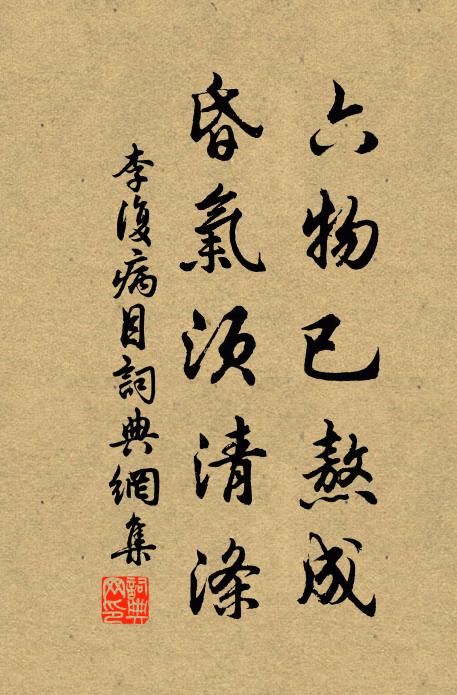 六物已熬成
昏氣須清滌
李復病目詞典網集
詞典網印